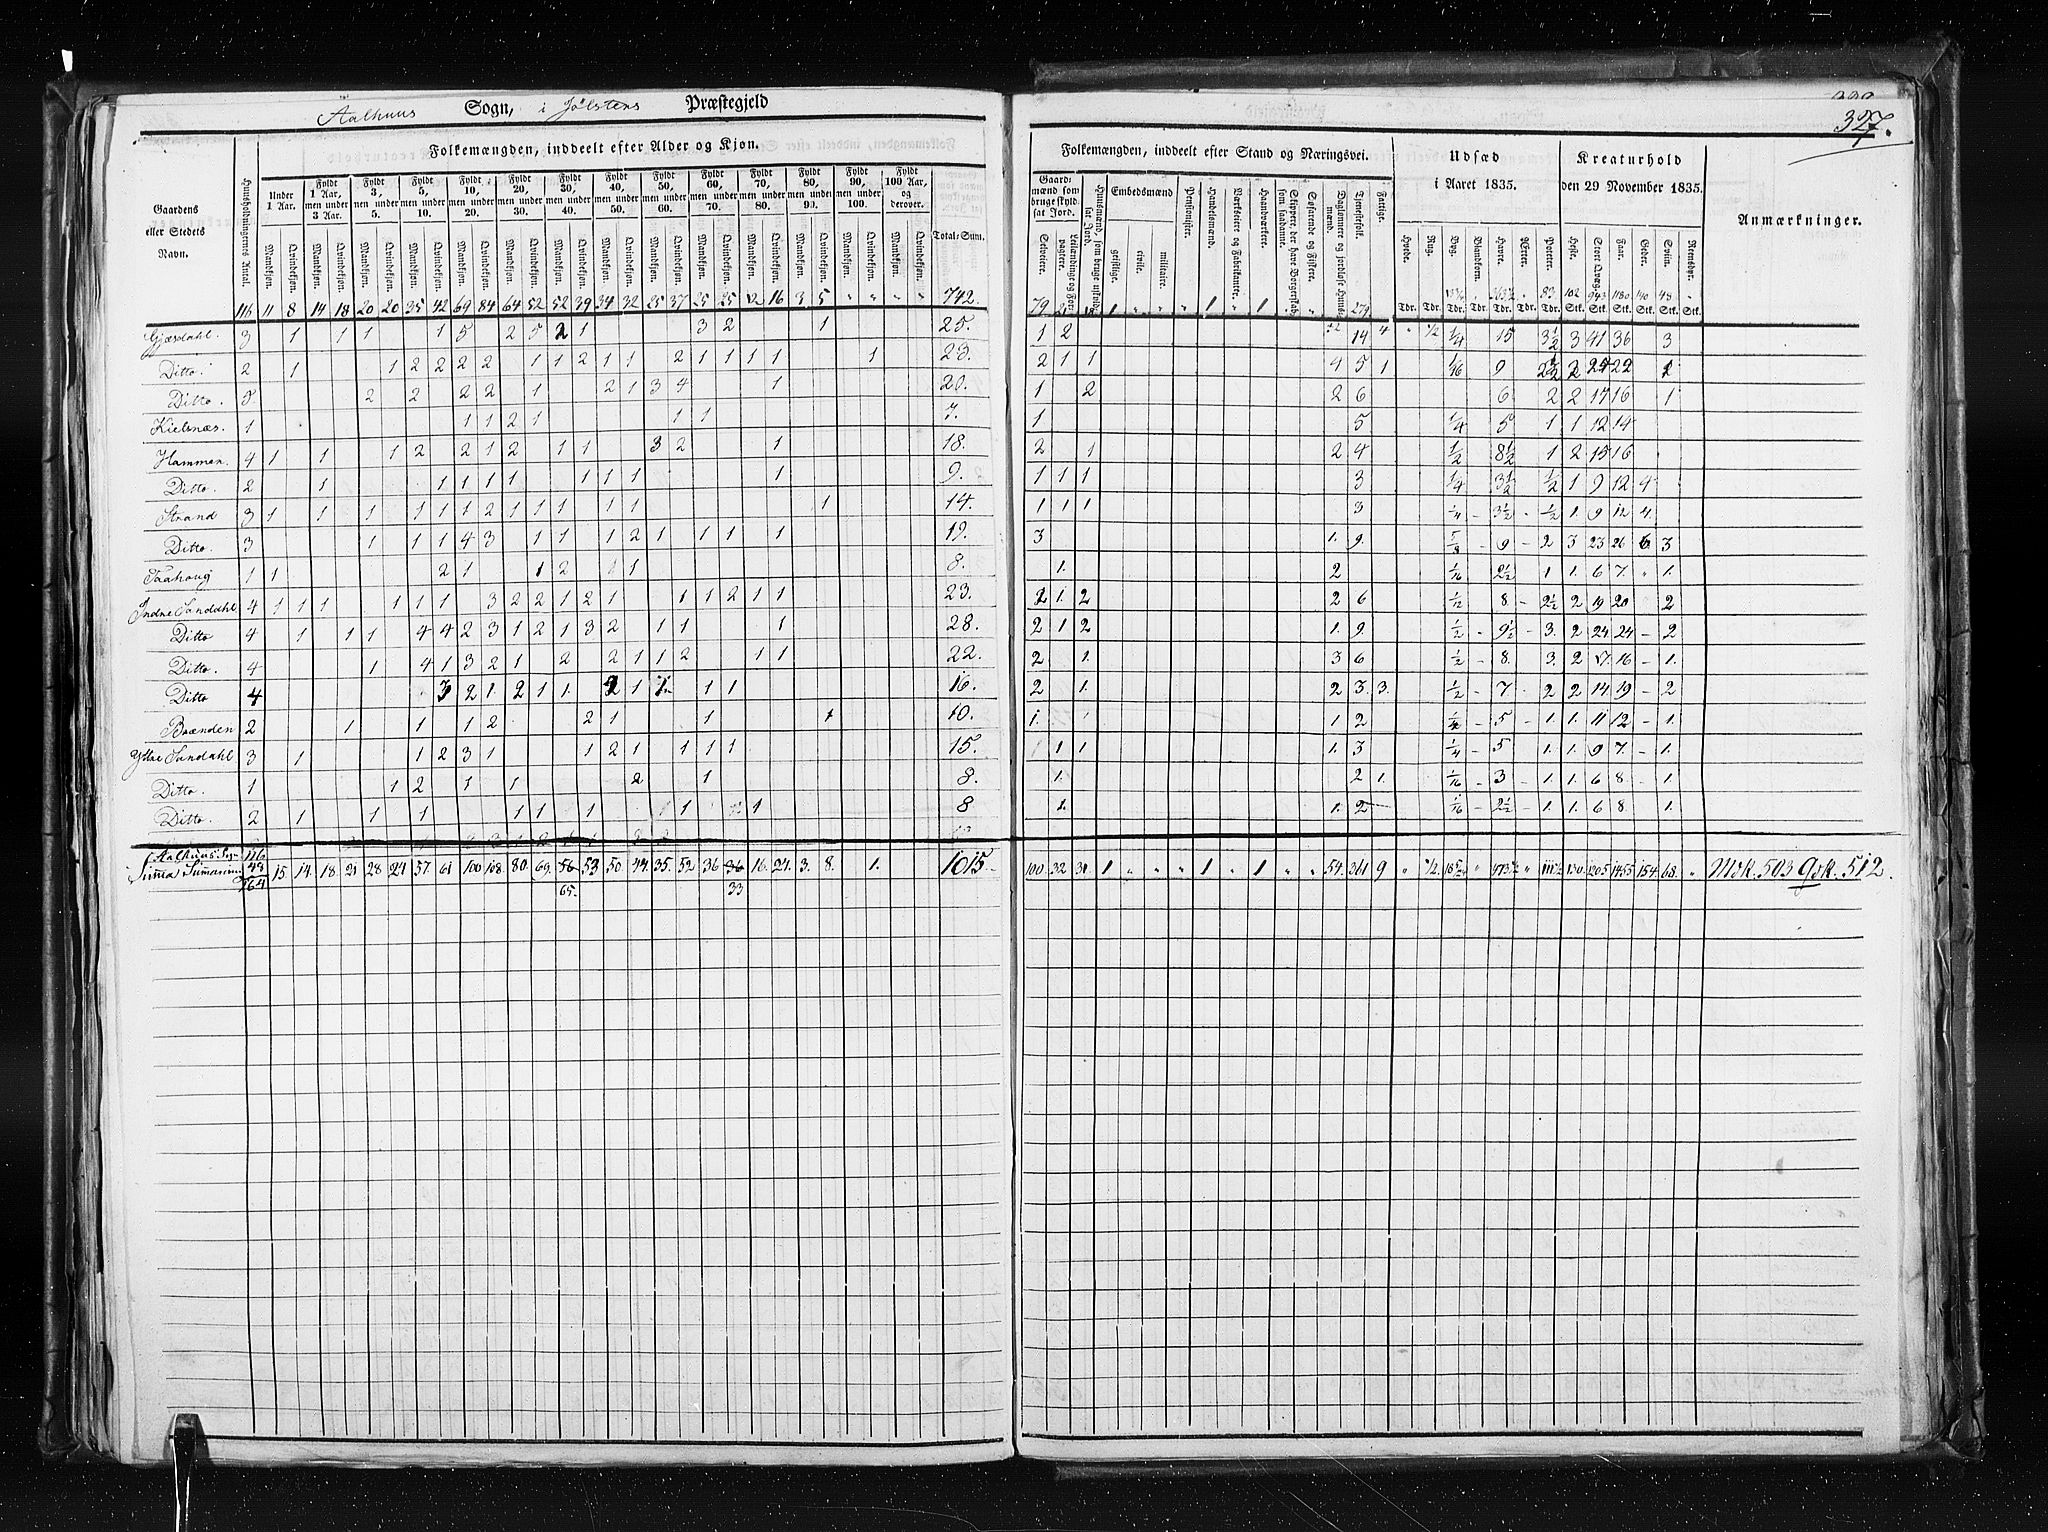 Aalhuus Sogn, i Jölsters Præstegjeld
327.
Gaardens eller Stedets Navn.
Huusholdningernes Antal.
Folkemængden, inddeelt efter Alder og Kjøn.
Under 1 Aar.
Fyldt 1 Aar, men under 3 Aar.
Fyldt 3, men under 5.
Fyldt 5, men under 10.
Fyldt 10, men under 20.
Fyldt 20, men under 30.
Fyldt 30, men under 40.
Fyldt 40, men under 50.
Fyldt 50, men under 60.
Fyldt 60, men under 70.
Fyldt 70, men under 80.
Fyldt 80, men under 90.
Fyldt 90, men under 100.
Fyldt 100 Aar, og derover.
Mandkjøn. Qvindekjøn.
Total-Sum.
Folkemængden, inddeelt efter Stand og Næringsvei.
Gaardmænd som bruge skyldsat Jord.
Selveiere.
Leilændinge og Forpagtere.
Huusmænd, som bruge uskyldsat Jord.
Embedsmænd
geistlige.
civile.
militaire.
Pensionister.
Handelsmænd.
Værkseiere og Fabrikanter.
Haandværkere.
Skippere, der have Borgerskab som saadanne.
Søfarende og Fiskere.
Daglønnere og jordløse Huusmænd.
Tjenestefolk.
Fattige.
Udsæd i Aaret 1835.
Hvede. Rug. Byg. Blandkorn. Havre. Ærter. Poteter.
Kreaturhold den 29 November 1835.
Heste. Stort Qvæg. Faar. Geder. Sviin. Rensdyr.
Anmærkninger.
116 11 8 14 18 20 20 35 42 69 84 64 52 52 39 34 32 25 37 25 25 12 16 3 5 " " " " 742.
Gjæsdahl. 3 1 1 1 1 5 2 5 2 1 3 2 1 25. 1 2 14 4 " 1/2 1/4 15 3 1/2 3 41 36 3
Ditto. 2 1 1 2 2 2 2 1 1 2 1 1 2 1 1 1 1 1 23. 2 1 1 4 5 1 1/16 9 2 1/2 2 24 22
Ditto. 5. 2 2 2 2 1 2 1 3 4 1 20. 1 2 2 6 6 2 2 17 16 1
Kielsnæs. 1 1 1 2 1 1 1 7. 1 5 1/4 5 1 1 12 14
Hammen. 4 1 1 1 2 2 1 2 1 1 3 2 1 18. 2 1 2 4 1/2 8 1/2 1 2 15 16
Ditto. 2 1 1 1 1 1 1 1 1 1 9. 1 1 1 3 1/4 3 1/2 1/2 1 9 12 4
Strand 3 1 1 1 1 1 1 2 1 1 1 1 1 1 14. 1 1 1 3 1/4 3 1/2 1/2 1. 9 12 4.
Ditto. 3 1 1 1 4 3 1 1 1 2 1 1 1 1 19. 3 1. 9. 5/8 9 2 3 23 26 6 3
Taahoug 1 1 2 1 1 2 1 1 8. 1. 2 1/16 2 1/2 1 1. 6 7. " 1.
Indre Sandahl 4 1 1 1 1 1 1 3 2 2 1 2 1 1 1 2 1 1 23. 2 1. 2 2 6 1/2 8 2 1/2 2 19 20 2
Ditto 4 1 1 1 4 4 2 3 1 2 1 3 2 1 1 1 28. 2 1 2 1. 9. 1/2 9 1/2 3. 2 24 24 2
Ditto. 4 1 4 1 3 2 1 2 2 1 1 2 1 1 22. 2 1. 3 6 1/2 8. 3. 2 17. 16 1.
Ditto 4 3 2 1. 2 1 1. 2 1 1 1 1 16. 2 1. 2 3. 3. 1/2 7 2 2 14. 19 2
Brænden 2 1 1 1 2 2 1 1 1 10. 1. 1 2 1/4 5 1. 1. 11 12 1.
Ytre Sandahl 3 1 1 2 3 1 1 2 1 1 1 1 15. 1 1 1. 3 1/4 5 1. 1. 9 7. 1.
Ditto. 1 1 2 1 1 2 1 8. 1. 2 1. 1/16 3 1. 1. 6 8. 1
Ditto. 2 1 1 1 1 1 1 1 1 8 1. 1. 2 1/16 2 1/2 1. 1. 6 8. 1.
Aalhuus Sogn 116
Sima Sumarum 48
164 15. 14. 18. 21 28. 24 57. 61 100 108. 80. 69. 56 53 50. 44. 35. 52. 36. 36 16. 24. 3. 8. 1. 1015. 100 32 31 1 " " " 1 " 1 " " 54. 361 9 " 1/2 18 5/16 " 473 1/2 " 111 1/2 130. 1205 1455 154. 68. " Mdk. 503 Qdk. 512.
65. 33